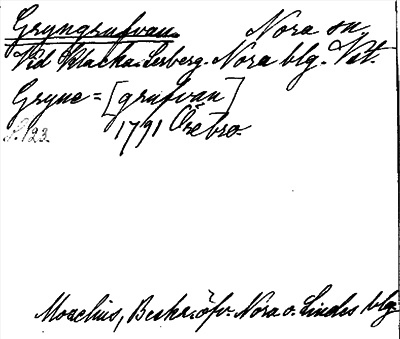 Gryngrufvan. Nora sn.
Vid Klacka-Lerberg. Nora blg. Vst.
Gryne = [grufvan]
1791 Örebro.
S. 123.
Moæchius, Beskr. öfv. Nora o. Lindes blg